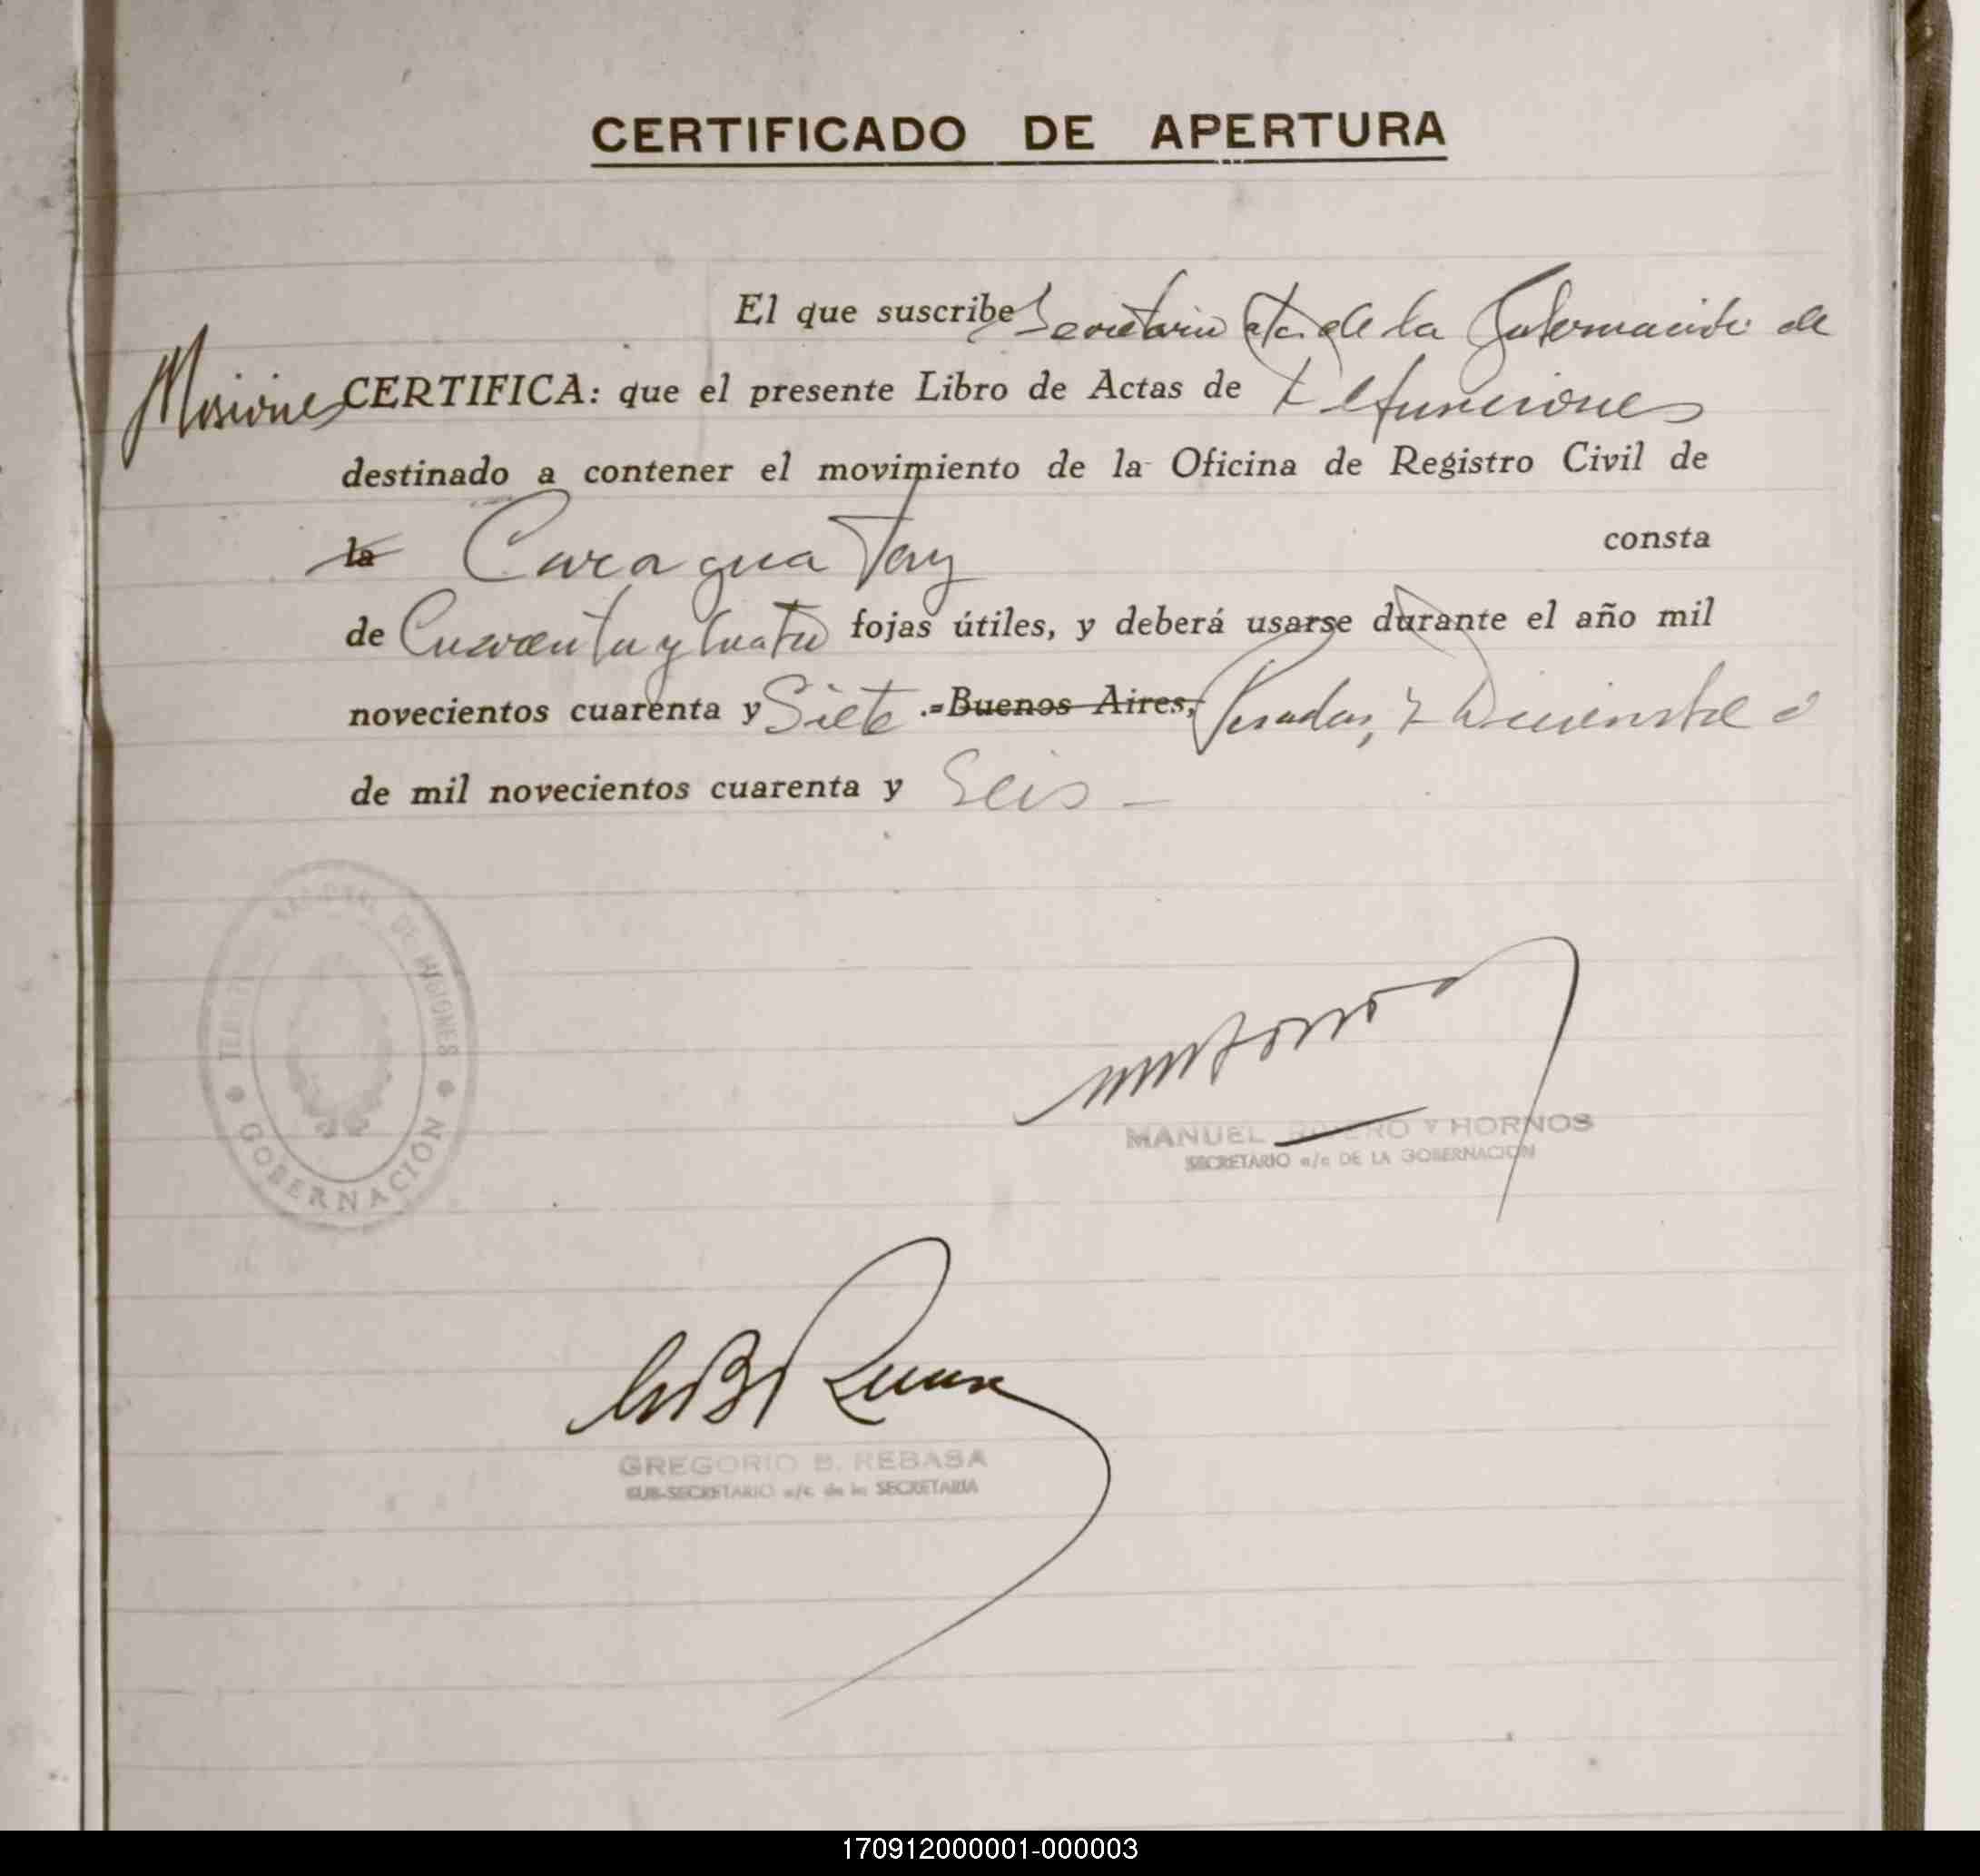 CERTIFICADO DE APERTURA
El que suscribe Secretario a/c. de la Gobernación de
Misiones CERTIFICA: que el presente Libro de Actas de Defunciones
destinado a contener el movimiento de la Oficina de Registro Civil de
la Caraguatay consta
de Cuarenta y Cuatro fojas útiles, y deberá usarse durante el año mil
novecientos cuarenta y Siete .=Buenos Aires, Posadas, Diciembre
de mil novecientos cuarenta y Seis -
NACIONAL DE MISIONES
GOBERNACIÓN
MANUEL RIVERO Y HORNOS
SECRETARIO a/c DE LA GOBERNACION
GREGORIO B. REBASA
SUB-SECRETARIO a/c de la SECRETARIA
170912000001-000003